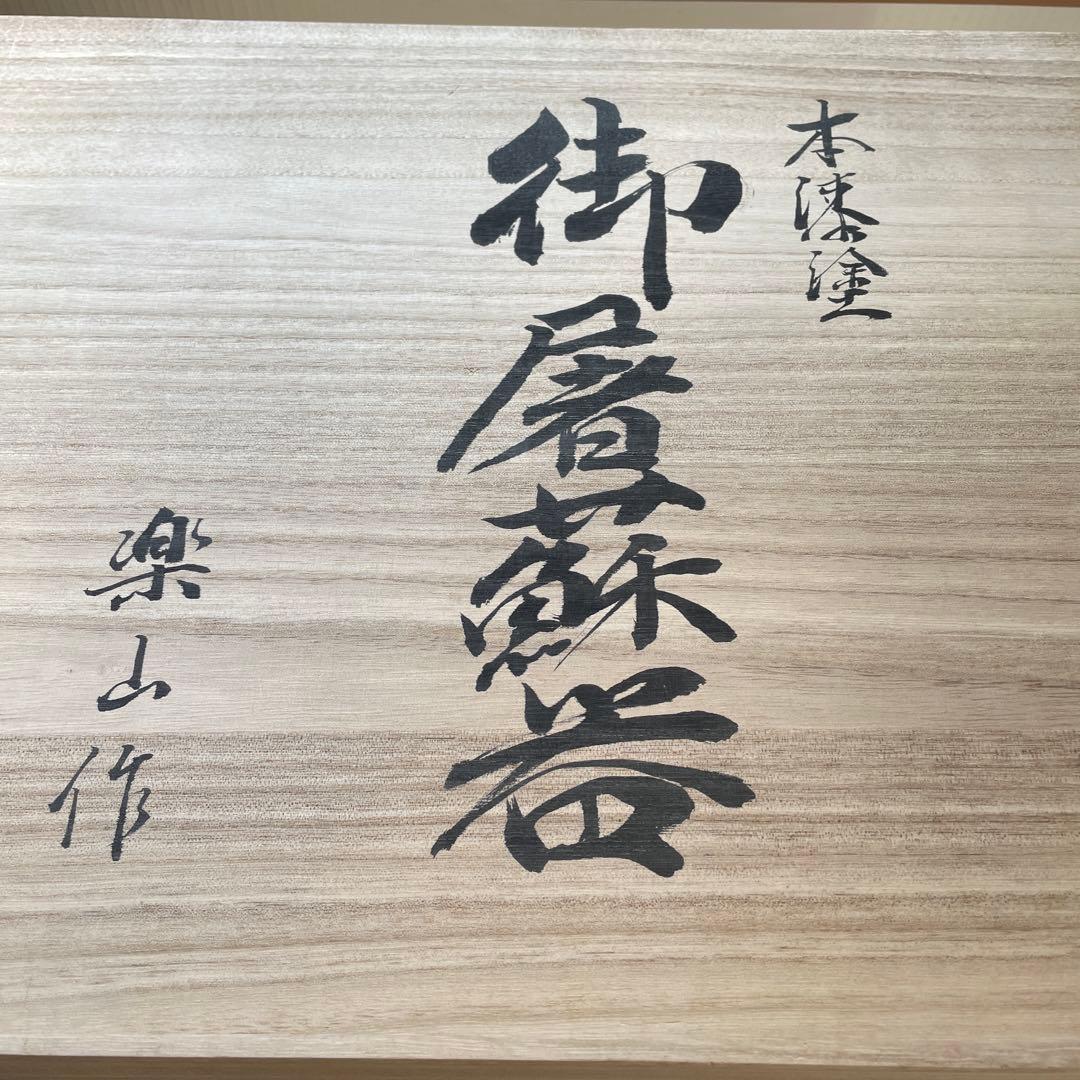 本漆塗
御屠蘇器
楽山作